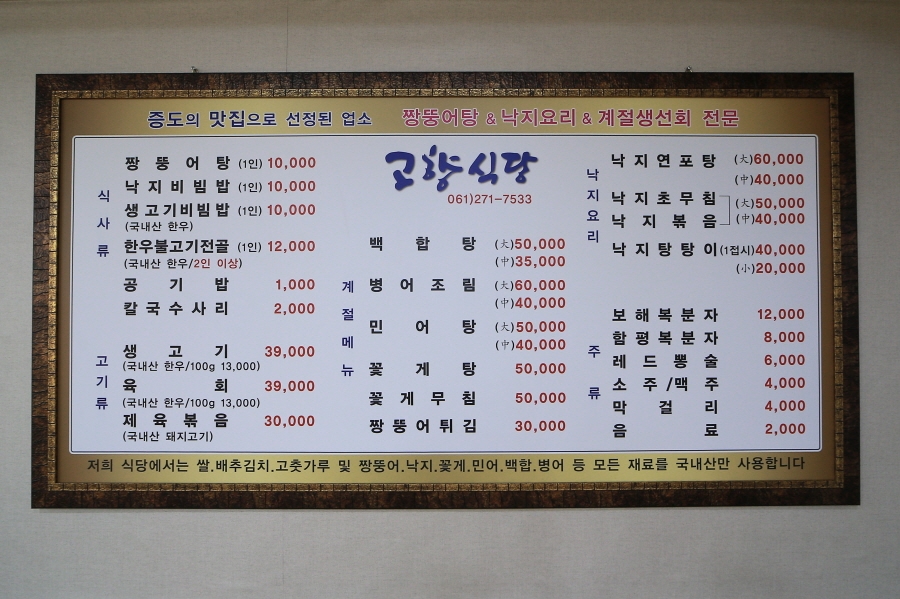 증도의 맛집으로 선정된 업소 짱뚱어탕 & 낙지요리 & 계절생선회 전문
고향식당
061)271-7533
식사류
짱뚱어탕 (1인) 10,000
낙지비빔밥 (1인) 10,000
생고기비빔밥 (1인) 10,000
(국내산 한우)
한우불고기전골 (1인) 12,000
(국내산 한우/2인 이상)
공기밥 1,000
칼국수사리 2,000
고기류
생고기 39,000
(국내산 한우/100g 13,000)
육회 39,000
(국내산 한우/100g 13,000)
제육볶음 30,000
(국내산 돼지고기)
계절메뉴
백합탕 (大)50,000
(中)35,000
병어조림 (大)60,000
(中)40,000
민어탕 (大)50,000
(中)40,000
꽃게탕 50,000
꽃게무침 50,000
짱뚱어튀김 30,000
낙지요리
낙지연포탕 (大)60,000
(中)40,000
낙지초무침 (大)50,000
낙지볶음 (中)40,000
낙지탕탕이 (1접시)40,000
(小)20,000
주류
보해복분자 12,000
함평복분자 8,000
레드뽕술 6,000
소주/맥주 4,000
막걸리 4,000
음료 2,000
저희 식당에서는 쌀.배추김치.고춧가루 및 짱뚱어.낙지.꽃게.민어.백합.병어 등 모든 재료를 국내산만 사용합니다